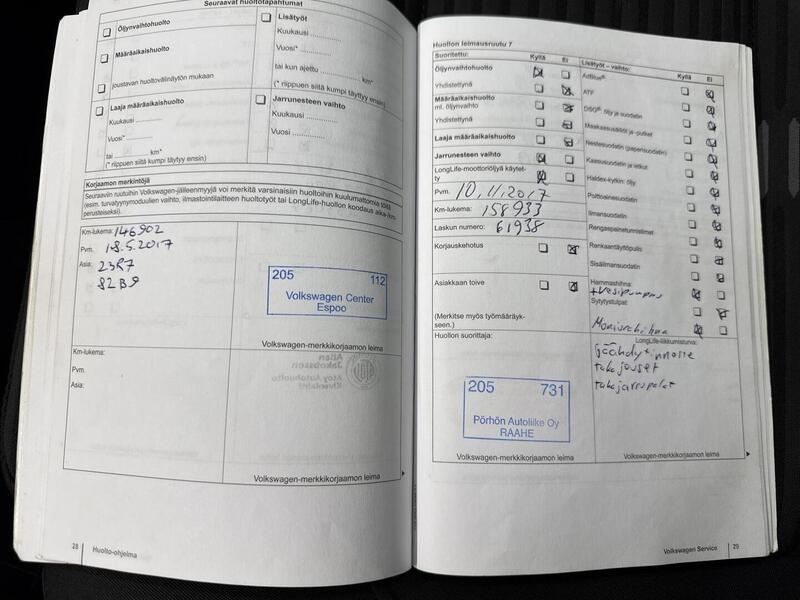 Seuraavat huoltotapahtumat
Öljynvaihtohuolto
Määräaikaishuolto
joustavan huoltovälinäytön mukaan
Laaja määräaikaishuolto
Kuukausi
Vuosi*
tai km*
(* riippuen siitä kumpi täyttyy ensin)
Lisätyöt
Kuukausi
Vuosi*
tai kun ajettu km*
(* riippuen siitä kumpi täyttyy ensin)
Jarrunesteen vaihto
Kuukausi
Vuosi
Korjaamon merkintöjä
Seuraaviin ruutuihin Volkswagen-jälleenmyyjä voi merkitä varsinaisiin huoltoihin kuulumattomia töitä
(esim. turvatyynymoduulien vaihto, ilmastointilaitteen huoltotyöt tai LongLife-huollon koodaus aika-/km-
perusteiseksi).
Km-lukema: 146902
Pvm. 18.5.2017
Asia: 23R7
82B9
205 112
Volkswagen Center
Espoo
Volkswagen-merkkikorjaamon leima
Km-lukema:
Pvm.
Asia:
Volkswagen-merkkikorjaamon leima
28 Huolto-ohjelma
Huollon leimausruutu 7
Suoritettu: Kyllä Ei
Öljynvaihtohuolto
Yhdistettynä
Määräaikaishuolto
ml. öljynvaihto
Yhdistettynä
Laaja määräaikaishuolto
Jarrunesteen vaihto
LongLife-moottoriöljyä käytet-
ty
Pvm. 10.11.2017
Km-lukema: 158933
Laskun numero: 61938
Korjauskehotus
Asiakkaan toive
(Merkitse myös työmääräyk-
seen.)
Huollon suorittaja:
205 731
Pörhön Autoliike Oy
RAAHE
Volkswagen-merkkikorjaamon leima
Lisätyöt – vaihto: Kyllä Ei
AdBlue®
ATF
DSG®: öljy ja suodatin
Nestesuodatin (paperisuodatin)
Kaasusuodatin ja letkut
Haldex-kytkin: öljy
Polttoainesuodatin
Ilmansuodatin
Rengaspainetunnistimet
Renkaantäyttöpullo
Sisäilmansuodatin
Hammashihna:
+ Vesipumppu
Sytytystulpat
Moniurahihna
LongLife-liikkumisturva:
Jäähdytinneste
takajouset
takajarrupalat
Volkswagen-merkkikorjaamon leima
Volkswagen Service 29